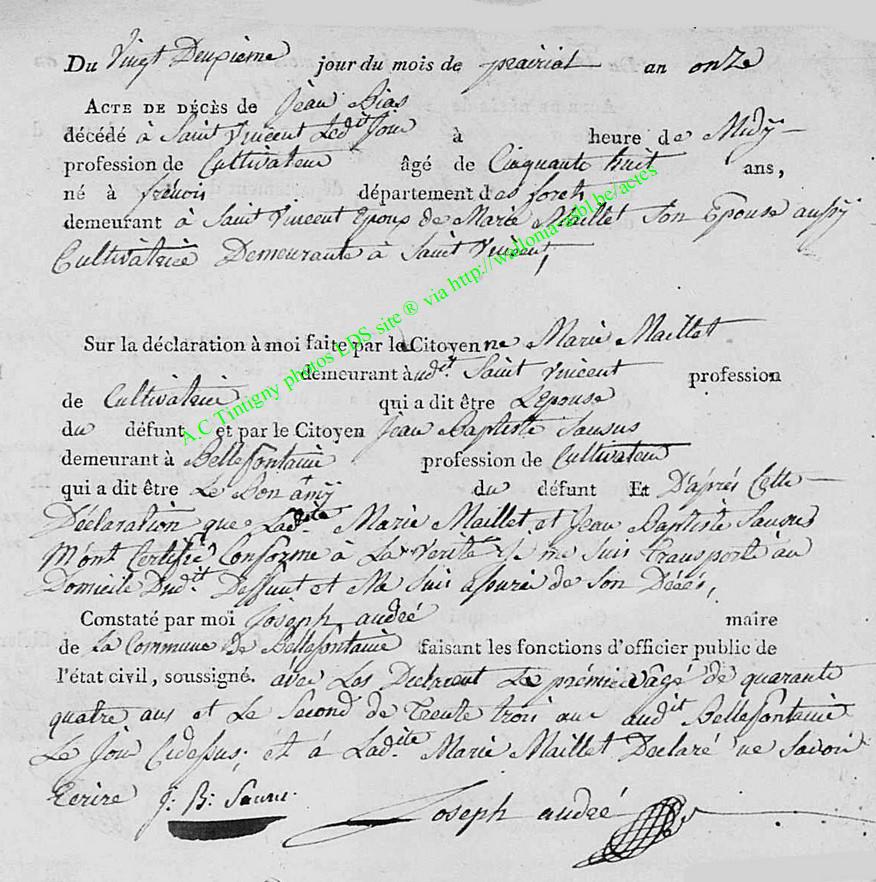 Du Vingt Deuxième jour du mois de prairial an onze
ACTE DE DÉCÈS de Jean Bias
décédé à Saint Vincent Ledit Jour à heure de Midy
profession de Cultivateur âgé de Cinquante huit ans,
né à frenois département des forets
demeurant à Saint Vincent Epoux de Marie Maillet Son Epouse aussy
Cultivatrice Demeurante à Saint Vincent,
Sur la déclaration à moi faite par la Citoyenne Marie Maillet
demeurant audit Saint Vincent profession
de Cultivateur qui a dit être L'epouse
du défunt et par le Citoyen Jean Baptiste Sausus
demeurant à Bellefontaine profession de Cultivateur
qui a dit être Le Bon amy du défunt Et D'après Cette
Déclaration que Ladite Marie Maillet et Jean Baptiste Sausus
M'ont Certifié Conforme à La Verité je me Suis transporté au
Domicile Dudit Deffunt et Me Suis assuré de Son Décès,
Constaté par moi Joseph andré maire
de La Commune de Bellefontaine faisant les fonctions d'officier public de
l'état civil, soussigné. avec Les la prémiere âgé de quarante
quatre ans et Le Second de Trente trois ans audit Bellefontaine
Le Jour Cidessus, et à Ladite Marie Maillet Declaré ne Savoir
Ecrire J: B: Joseph andré
A.C Tintigny photos EDS site ® via http://wallonia-asbl.be/actes